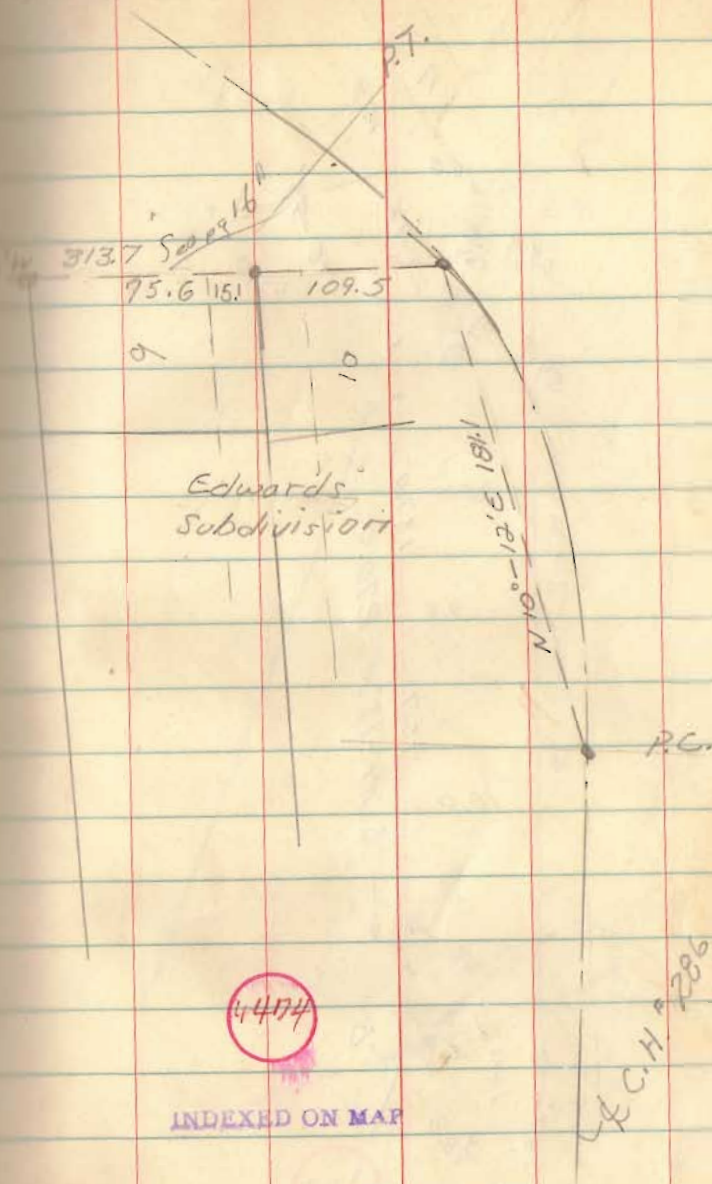 P.T.
313.7
75.6 15.1 109.5
9
10
Edwards
Subdivision
N 10°-12'E 181.1
P.C.
C.H. # 286
INDEXED ON MAP